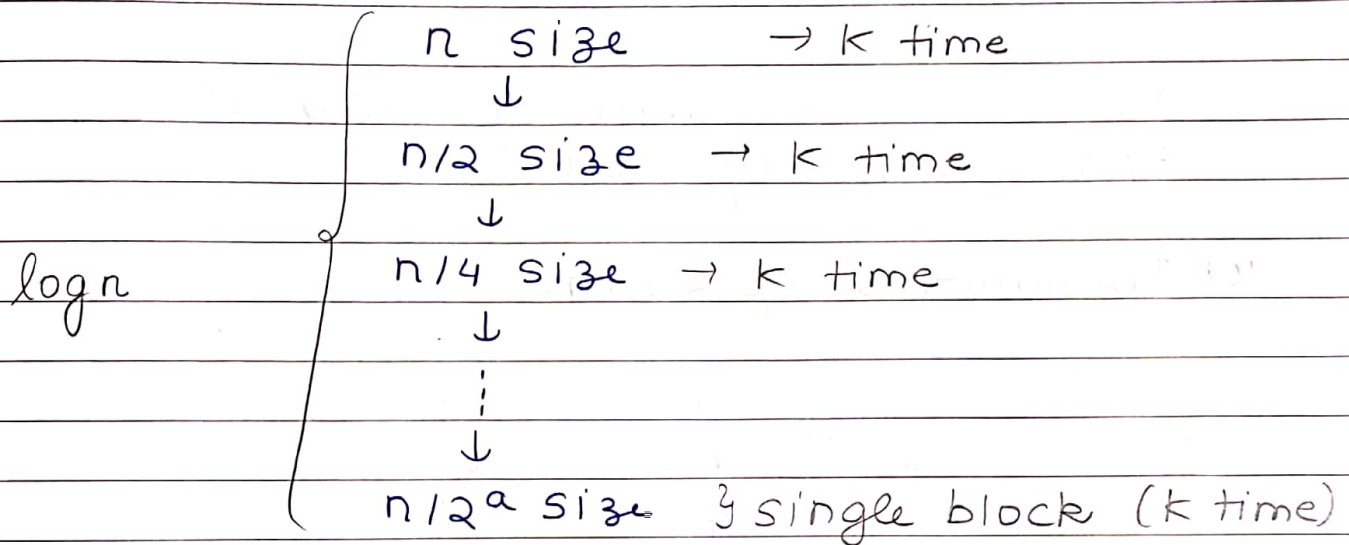 n size → k time
↓
n/2 size → k time
↓
log n
n/4 size → k time
↓
↓
n/2ᵃ size } single block (k time)